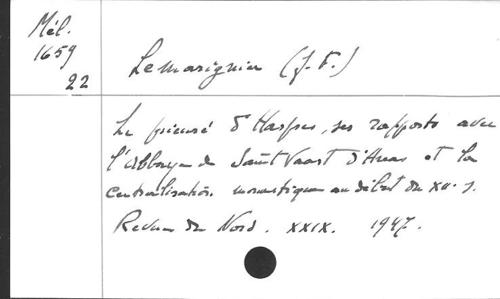 Mél.
1659
22
Lemarignier (J. F.)
Le prieuré d'Haspres, ses rapports avec
l'abbaye de Saint Vaast d'Arras et la
centralisation monastique au début du XIIe s.
Revue du Nord. XXIX. 1947.